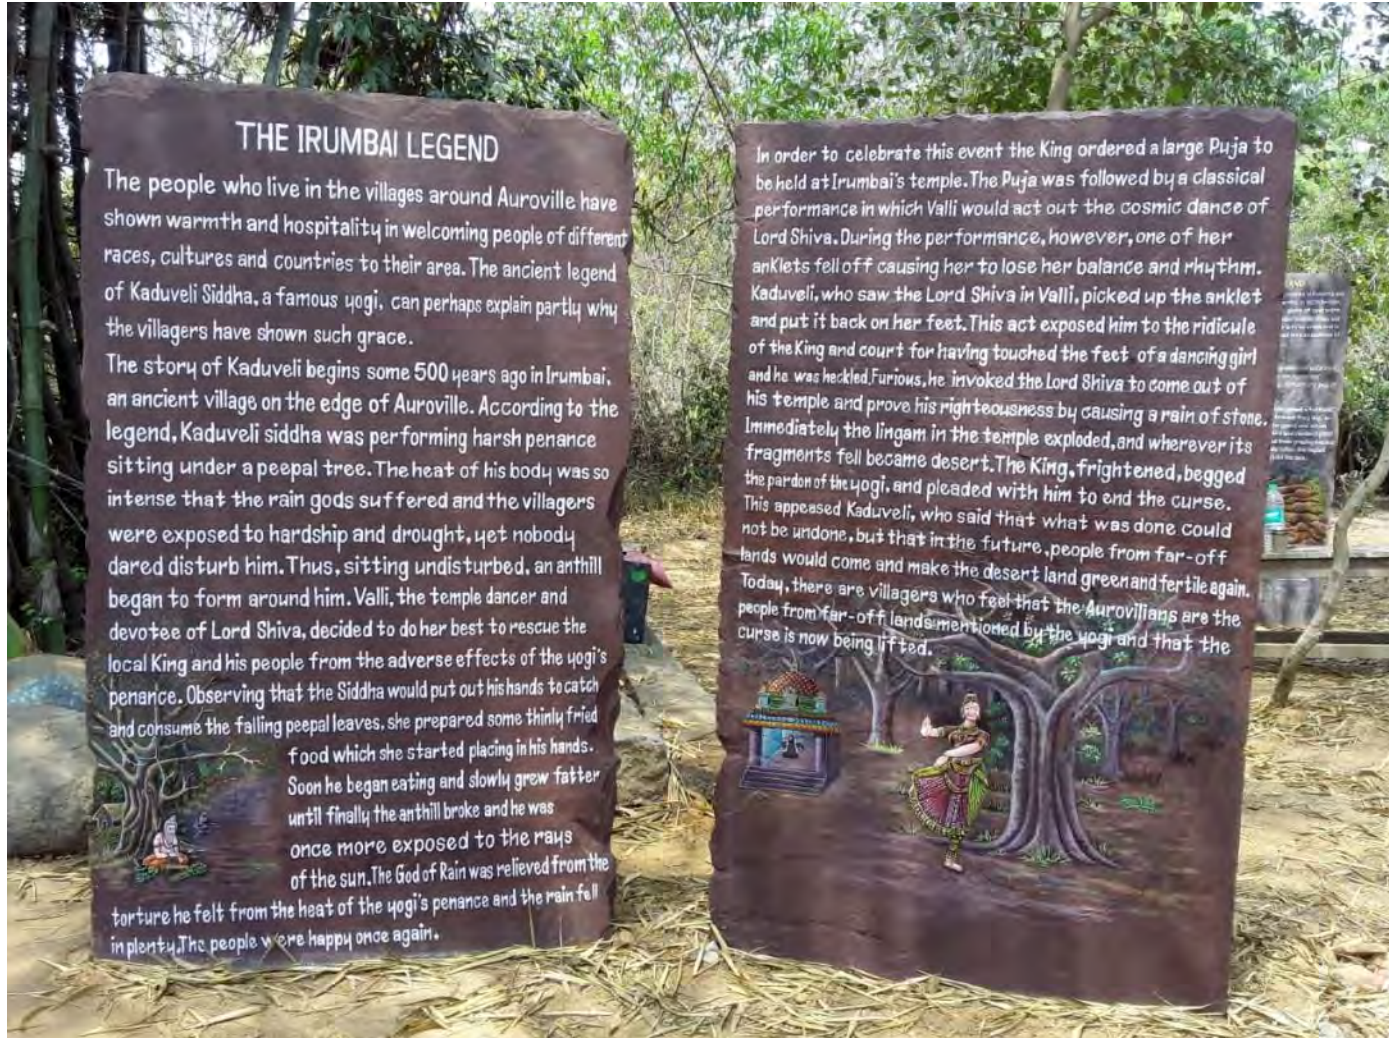 THE IRUMBAI LEGEND
The people who live in the villages around Auroville have
shown warmth and hospitality in welcoming people of different
races, cultures and countries to their area. The ancient legend
of Kaduveli Siddha, a famous yogi, can perhaps explain partly why
the villagers have shown such grace.
The story of Kaduveli begins some 500 years ago in Irumbai,
an ancient village on the edge of Auroville. According to the
legend, Kaduveli siddha was performing harsh penance
sitting under a peepal tree. The heat of his body was so
intense that the rain gods suffered and the villagers
were exposed to hardship and drought, yet nobody
dared disturb him. Thus, sitting undisturbed, an anthill
began to form around him. Valli, the temple dancer and
devotee of Lord Shiva, decided to do her best to rescue the
local King and his people from the adverse effects of the yogi's
penance. Observing that the Siddha would put out his hands to catch
and consume the falling peepal leaves, she prepared some thinly fried
food which she started placing in his hands.
Soon he began eating and slowly grew fatter
until finally the anthill broke and he was
once more exposed to the rays
of the sun. The God of Rain was relieved from the
torture he felt from the heat of the yogi's penance and the rain fell
in plenty. The people were happy once again.
In order to celebrate this event the King ordered a large Puja to
be held at Irumbai's temple. The Puja was followed by a classical
performance in which Valli would act out the cosmic dance of
Lord Shiva. During the performance, however, one of her
anklets fell off causing her to lose her balance and rhythm.
Kaduveli, who saw the Lord Shiva in Valli, picked up the anklet
and put it back on her feet. This act exposed him to the ridicule
of the King and court for having touched the feet of a dancing girl
and he was heckled. Furious, he invoked the Lord Shiva to come out of
his temple and prove his righteousness by causing a rain of stone.
Immediately the lingam in the temple exploded, and wherever its
fragments fell became desert. The King, frightened, begged
the pardon of the yogi, and pleaded with him to end the curse.
This appeased Kaduveli, who said that what was done could
not be undone, but that in the future, people from far-off
lands would come and make the desert land green and fertile again.
Today, there are villagers who feel that the Aurovilians are the
people from far-off lands mentioned by the yogi and that the
curse is now being lifted.